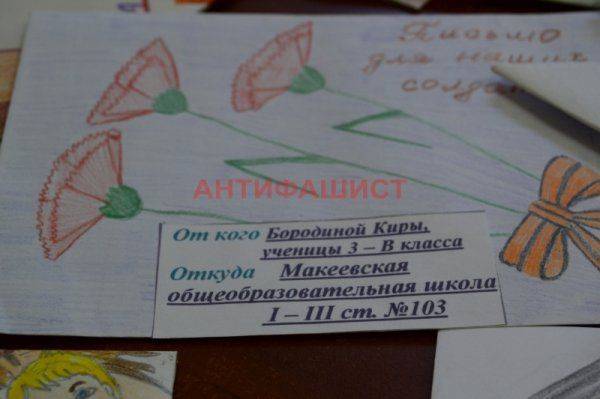 Письмо
для наших
АНТИФАШИСТ
От кого Бородиной Киры,
ученицы 3 – В класса
Откуда Макеевская
общеобразовательная школа
I – III ст. №103